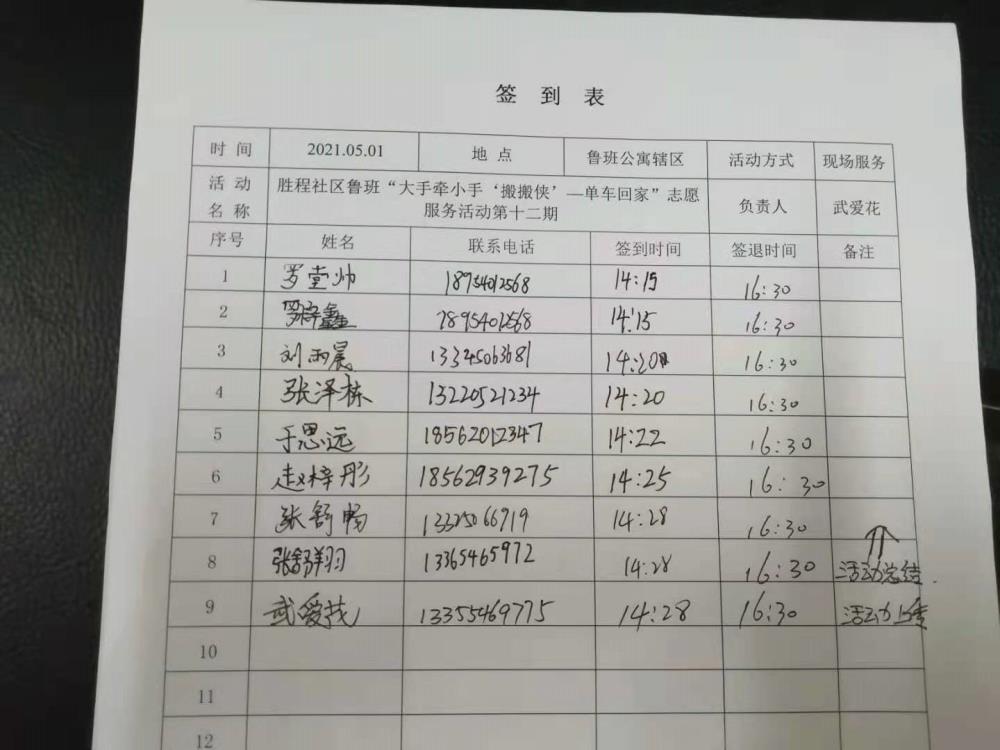 签 到 表
时 间 2021.05.01 地 点 鲁班公寓辖区 活动方式 现场服务
活 动 名 称 胜程社区鲁班“大手牵小手‘搬搬侠’—单车回家”志愿 负责人 武爱花
服务活动第十二期
序号 姓名 联系电话 签到时间 签退时间 备注
1 罗堂帅 18954012568 14:15 16:30
2 鑫 18954012568 14:15 16:30
3 刘雨晨 13345063681 14:20 16:30
4 张泽栋 13220521234 14:20 16:30
5 于思远 18562012347 14:22 16:30
6 赵梓彤 18562939275 14:25 16:30
7 张舒畅 14:28 16:30
8 张舒翔羽 13365465972 14:28 16:30 活动总结
9 武爱花 13355469775 14:28 16:30 活动
10
11
12